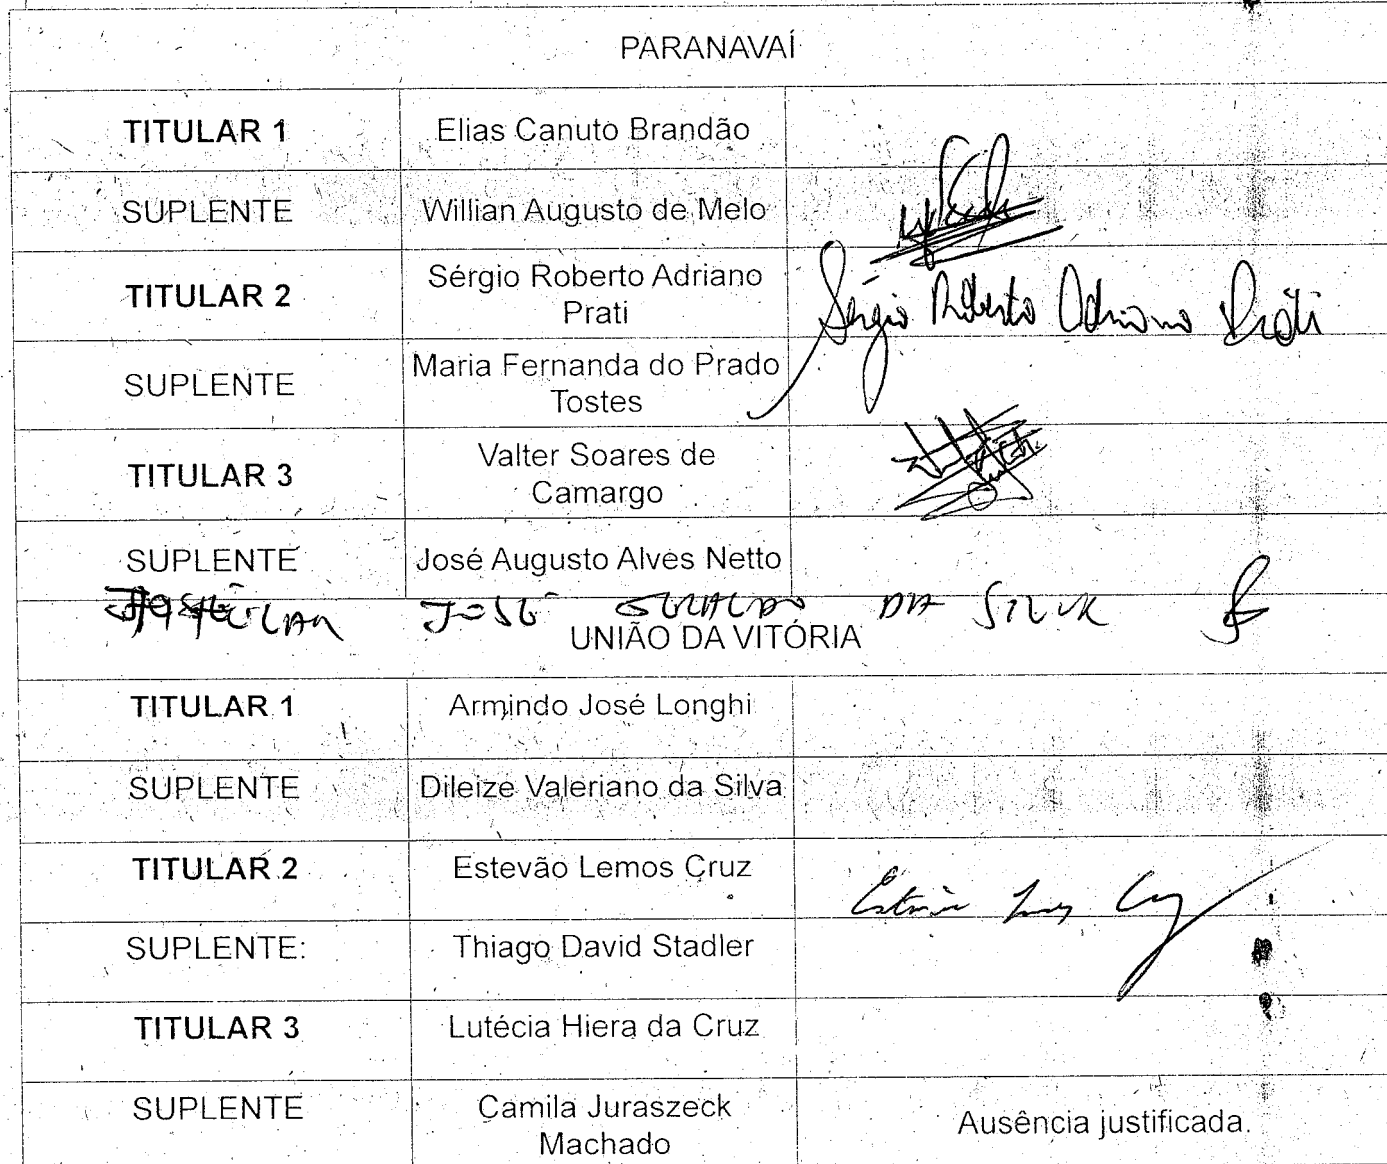 PARANAVAÍ
TITULAR 1 Elias Canuto Brandão
SUPLENTE Willian Augusto de Melo
TITULAR 2 Sérgio Roberto Adriano
Prati
Sérgio Roberto Adriano Prati
SUPLENTE Maria Fernanda do Prado
Tostes
TITULAR 3 Valter Soares de
Camargo
SUPLENTE José Augusto Alves Netto
JOSÉ DA SILVA
UNIÃO DA VITÓRIA
TITULAR 1 Armindo José Longhi
SUPLENTE Dileize Valeriano da Silva
TITULAR 2 Estevão Lemos Cruz
SUPLENTE: Thiago David Stadler
TITULAR 3 Lutécia Hiera da Cruz
SUPLENTE Camila Juraszeck
Machado
Ausência justificada.